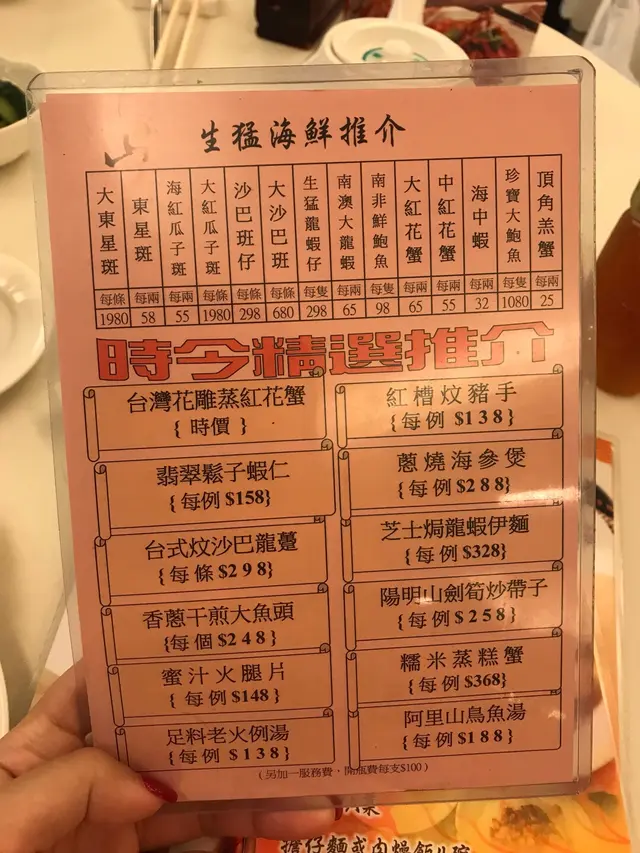 生猛海鮮推介
大東星斑 每條 1980
東星斑 每兩 58
海紅瓜子斑 每兩 55
大紅瓜子斑 每條 1980
沙巴班仔 每條 298
大沙巴班 每條 680
生猛龍蝦仔 每隻 298
南澳大龍蝦 每兩 65
南非鮮鮑魚 每隻 98
大紅花蟹 每兩 65
中紅花蟹 每兩 55
海中蝦 每兩 32
珍寶大鮑魚 每隻 1080
頂角羔蟹 每兩 25
時令精選推介
台灣花雕蒸紅花蟹
{ 時價 }
紅槽炆豬手
{每例 $138}
翡翠鬆子蝦仁
{每例 $158}
蔥燒海參煲
{每例 $288}
台式炆沙巴龍躉
{每條 $298}
芝士焗龍蝦伊麵
{每例 $328}
香蔥干煎大魚頭
{每個 $248}
陽明山劍筍炒帶子
{每例 $258}
蜜汁火腿片
{每例 $148}
糯米蒸糕蟹
{每例 $368}
足料老火例湯
{每例 $138}
阿里山鳥魚湯
{每例 $188}
(另加一服務費，開瓶費每支$100)
擔仔麵或肉燥飯